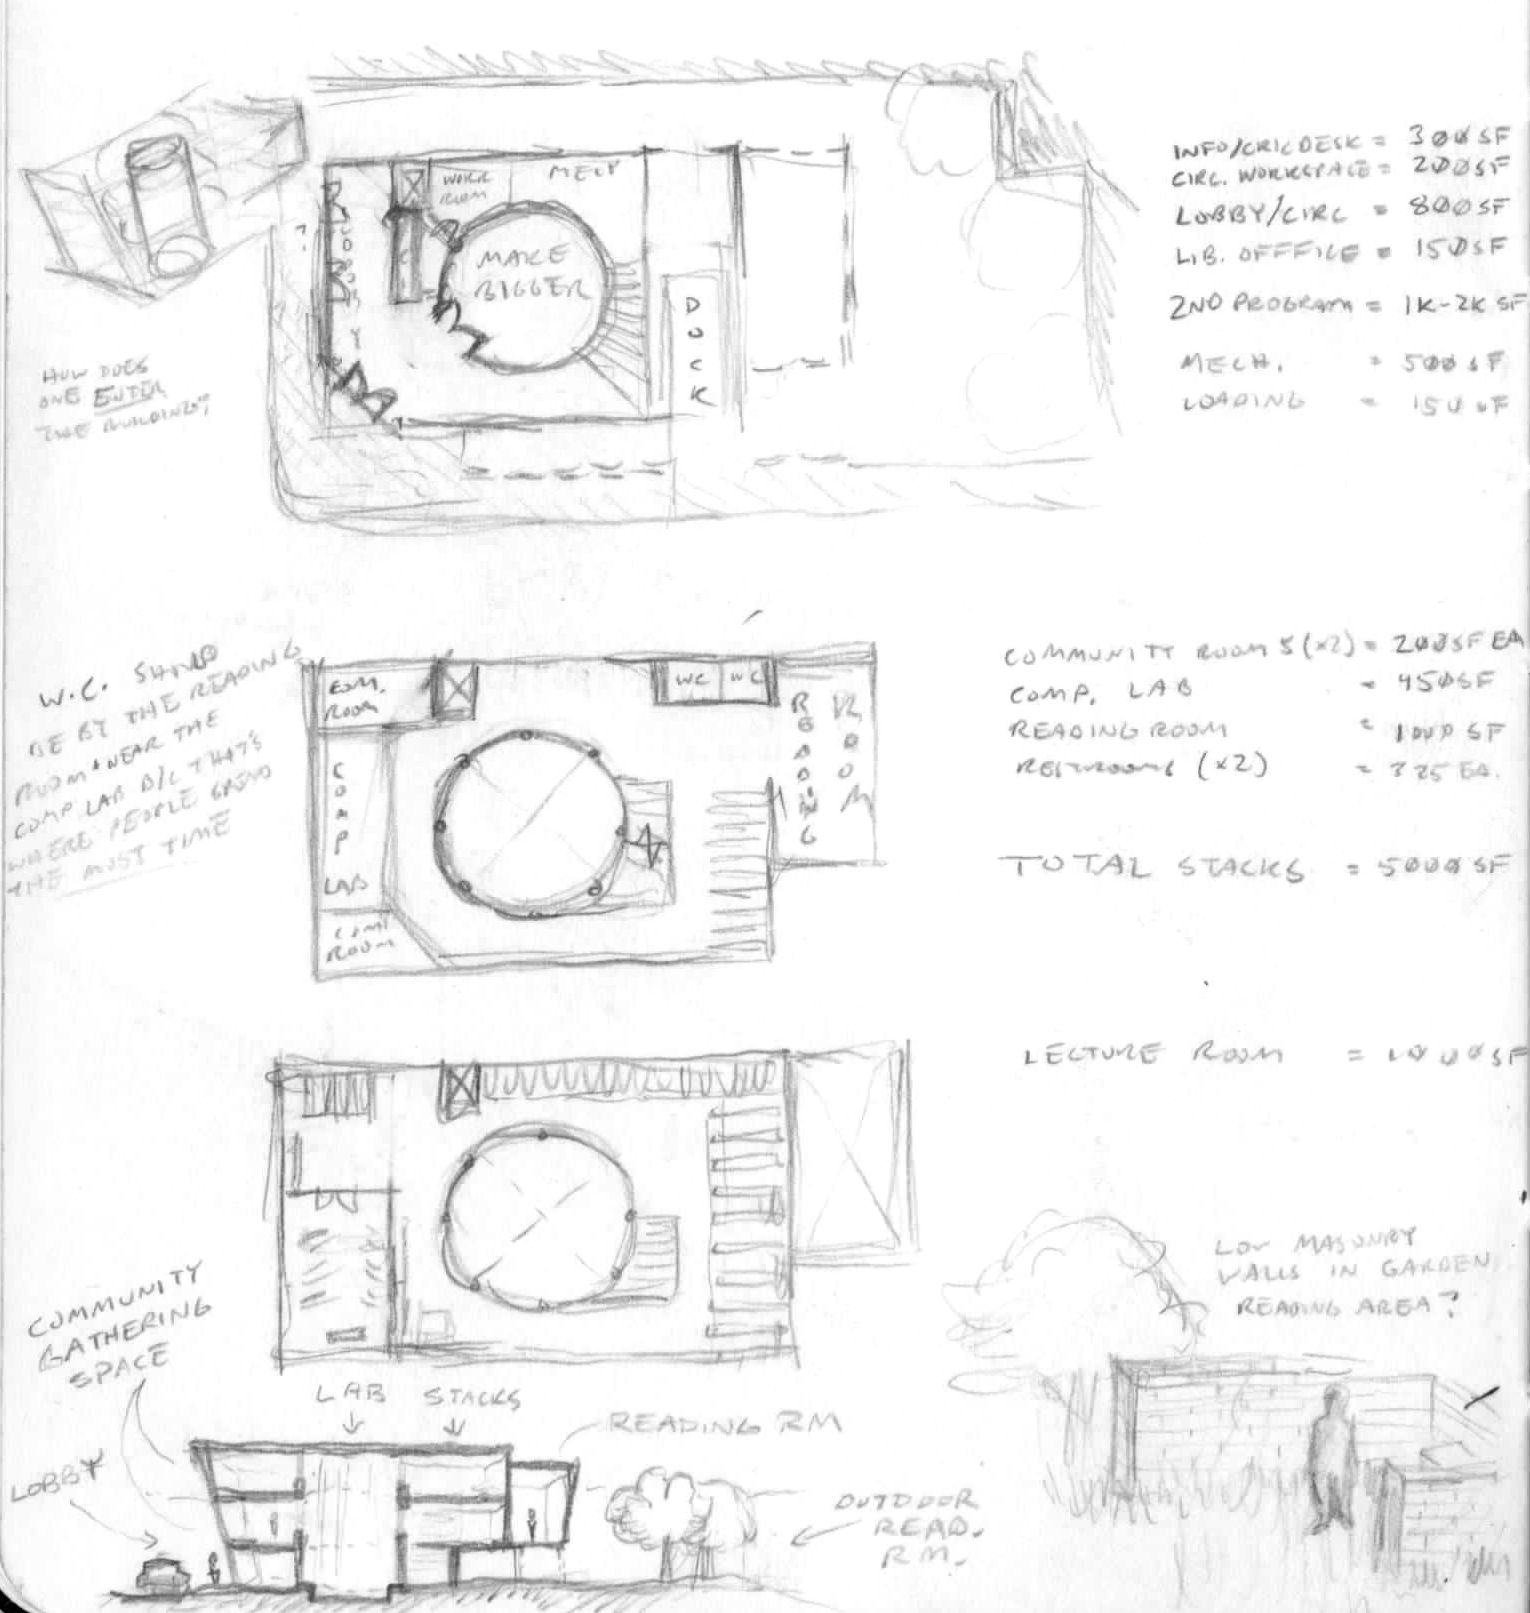 INFO/CRIC DESK = 300 SF
CIRC. WORKSPACE = 200 SF
LOBBY/CIRC = 800 SF
LIB. OFFFICE = 150 SF
2ND PROGRAM = 1K-2K SF
MECH. = 500 SF
LOADING = 150 SF
WORK
ROOM
MECH
MAKE
BIGGER
LOBBY
DOCK
HOW DOES
ONE ENTER
THE BUILDING?
W.C. SHOULD
BE BY THE READING
ROOM + NEAR THE
COMP LAB B/C THAT'S
WHERE PEOPLE SPEND
THE MOST TIME
COM.
ROOM
WC WC
READING
ROOM
COMP
LAB
COM
ROOM
COMMUNITY ROOMS (x2) = 200 SF EA
COMP. LAB = 450 SF
READING ROOM = 1000 SF
RESTROOMS (x2) = 325 EA.
TOTAL STACKS = 5000 SF
LECTURE ROOM = 1000 SF
COMMUNITY
GATHERING
SPACE
LOBBY
LAB STACKS
READING RM
OUTDOOR
READ.
RM.
LOW MASONRY
WALLS IN GARDEN
READING AREA?